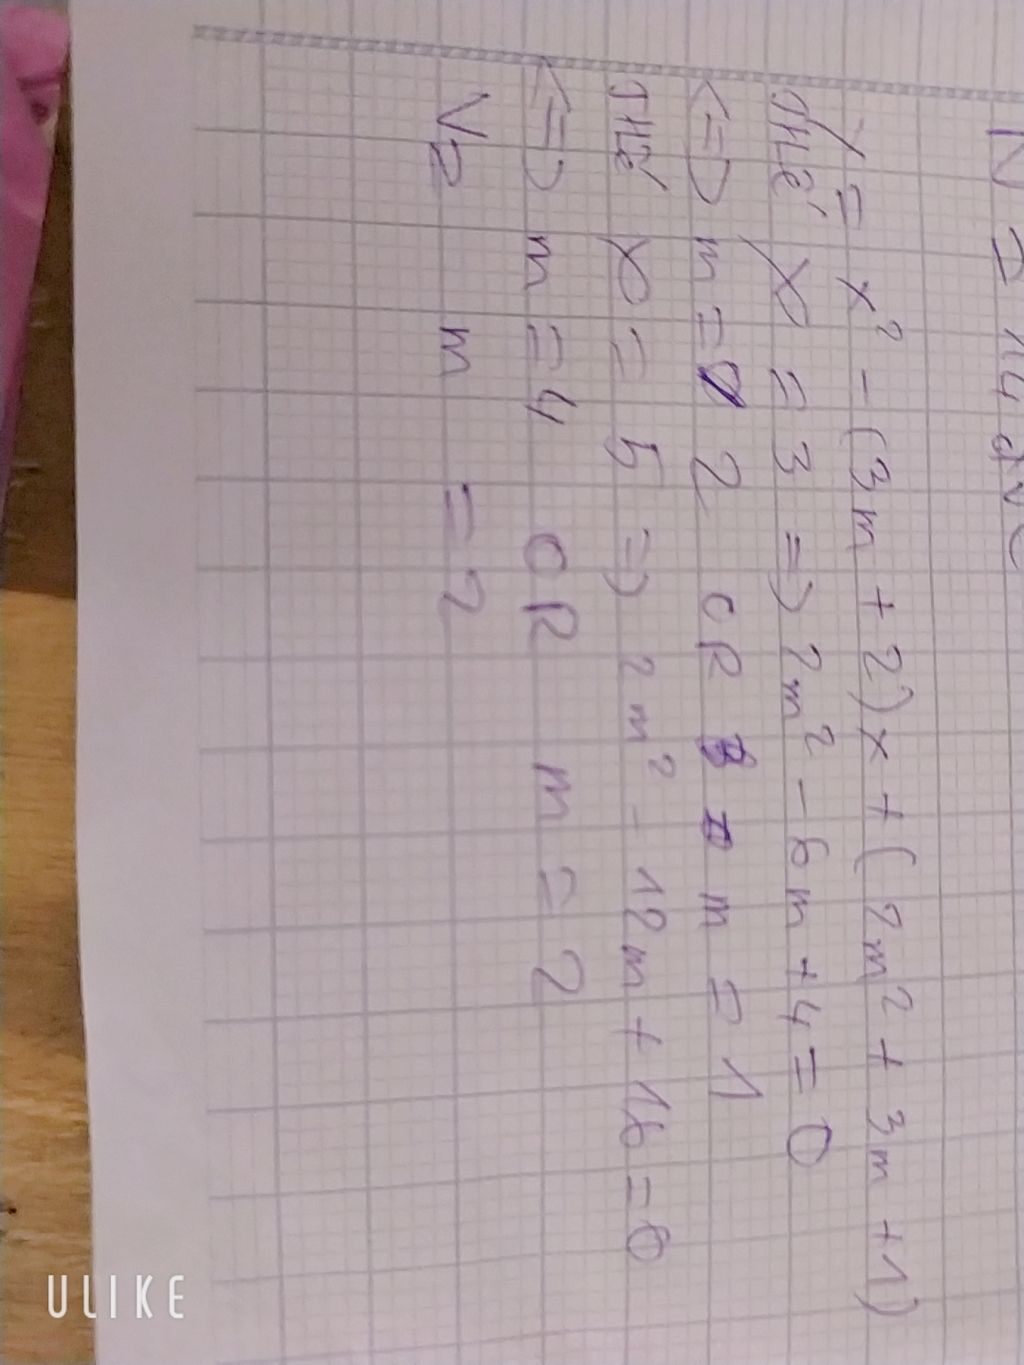 N = 14 dvc
y = x² - (3m + 2)x + (2m² + 3m + 1)
THẾ x = 3 => 2m² - 6m + 4 = 0
<=> m = 2 OR m = 1
THẾ x = 5 => 2m² - 12m + 16 = 0
<=> m = 4 OR m = 2
Vz m = 2
ULIKE